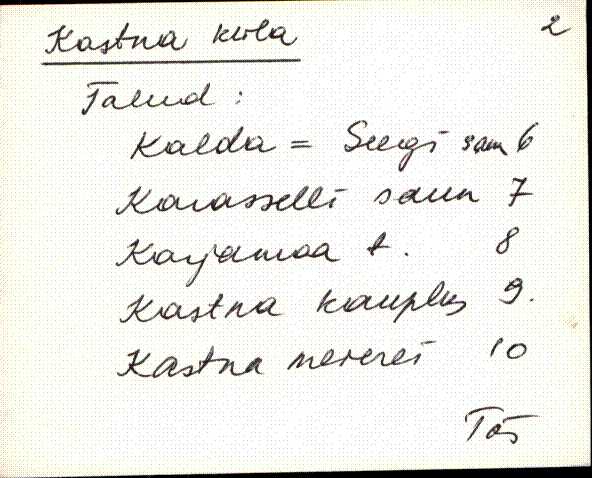 Kastna küla 2
Talud:
Kalda = Seegi saun 6
Karasselli saun 7
Karjamaa t. 8
Kastna kauplus 9.
Kastna 10
Tõs